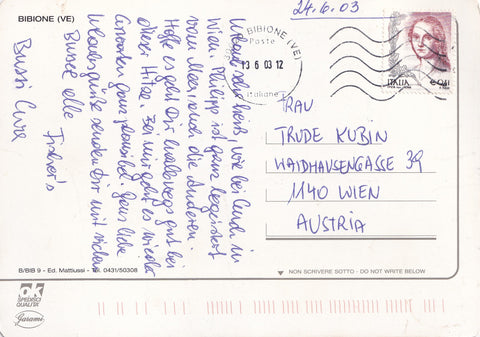 BIBIONE (VE)
24.6.03
BIBIONE (VE)
Poste
13 6 03 12
Italiane
ITALIA
€ 0,41
Urlaub sehr heiß, wie bei Euch in
Wien. Philipp ist ganz begeistert
vom Meer und die Anderen.
Hoffe es geht Dir halbwegs gut bei
dieser Hitze. Bei mir geht es wieder
ganz Ganz liebe
Urlaubsgrüße senden Dir mit vielen
Bussi alle Fischer's
Bussi Eure
FRAU
TRUDE KUBIN
WAIDHAUSENGASSE 39
1140 WIEN
AUSTRIA
B/BIB 9 - Ed. Mattiussi - Tel. 0431/50308
NON SCRIVERE SOTTO - DO NOT WRITE BELOW
OK
SPEDISCI
QUALITA'
Garami